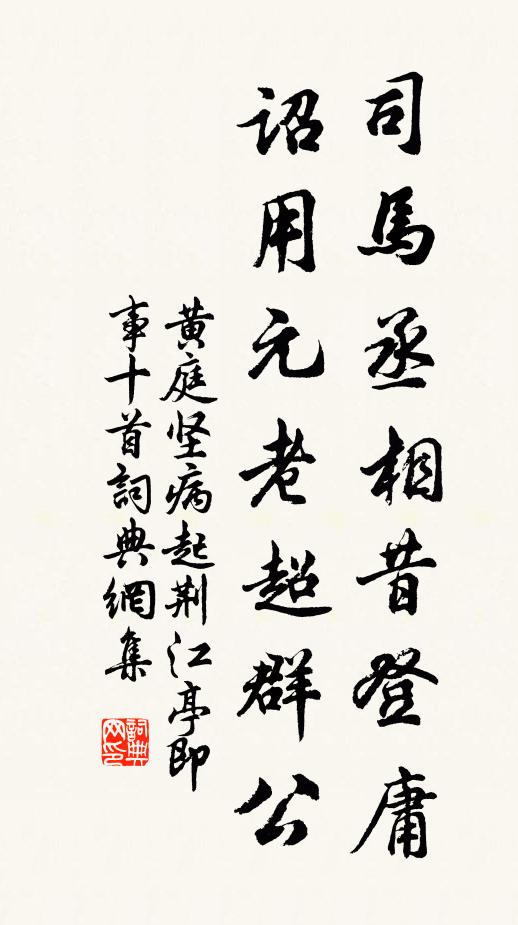 司馬丞相昔登庸
詔用元老超群公
黄庭坚病起荆江亭即
事十首詞典網集
詞典網印